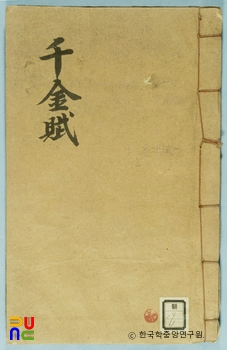 千金賦
© 한국학중앙연구원